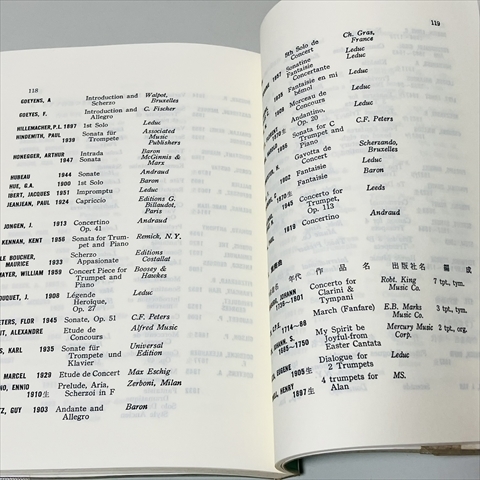 118
GOEYENS, A Introduction and Walpot,
Scherzo Bruxelles
GOEYES, F. Introduction and C. Fischer
Allegro
HILLEMACHER, P.L. 1897 1st Solo Leduc
HINDEMITH, PAUL 1939 Sonata für Associated
Trompete Music
Publishers
HONEGGER, ARTHUR Intrada Baron
1947 Sonata McGinnis &
Marx
HUBEAU 1944 Sonate Andraud
HUE, G.A. 1900 1st Solo Baron
IBERT, JACQUES 1951 Impromptu Leduc
JEANJEAN, PAUL 1924 Capriccio Editions G.
Billaudot,
Paris
JONGEN, J. 1913 Concertino Andraud
Op. 41
KENNAN, KENT 1956 Sonata for Trumpet Remick, N.Y.
and Piano
LE BOUCHER, Scherzo Editions
MAURICE Appasionate Costallat
MAYER, WILLIAM 1959 Concert Piece for Boosey &
Trumpet and Hawkes
Piano
OUQUET, J. 1908 Légende Leduc
Heroïque,
Op. 27
ETERS, FLOR 1945 Sonate, Op. 51 C.F. Peters
IT, ALEXANDRE Etude de Alfred Music
Concours
S, KARL 1935 Sonate für Universal
Trompete und Edition
Klavier
MARCEL 1929 Etude de Concert Max Eschig
NO, ENNIO Prelude, Aria, Zerboni, Milan
1910生 Scherzoi in F
TZ, GUY 1903 Andante and Baron
Allegro
119
Ch. Gras,
France
5th Solo de
Concert Leduc
Sonatine Leduc
Fantaisie
Concertante
Fantaisie en mi Leduc
bémol
Morceau de Leduc
Concours
Andantino, Leduc
Op. 20
Sonate for C C.F. Peters
Trumpet and
Piano
Scherzando,
Bruxelles
Gavotta de Baron
Concert
Fantaisie Baron
1945 Concerto for Leeds
Trumpet,
Op. 113
1919 Concertino Andraud
年代 作品名 出版社名 編成
JOHANN Concerto for Robt. King 7 tpt, tym.
1736—1801 Clarini & Music Co.
Tympani
1714—88 March (Fanfare) E.B. Marks 3 tpt, tym.
Music Co.
JOHANN S. My Spirit be Mercury Music 2 tpt, org.
1685—1750 Joyful-from Corp.
Easter Cantata
EUGENE Dialogue for Leduc
1905生 2 Trumpets
HENRY 4 trumpets for MS.
1897生 Alan